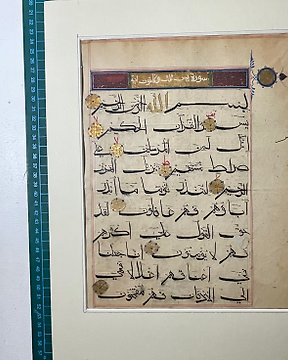 سورة يس
بسم الله الرحمن الرحيم
يس والقرآن الحكيم
إنك لمن المرسلين على
صراط مستقيم تنزيل العزيز
الرحيم لتنذر قوما ما أنذر
آباؤهم فهم غافلون لقد
حق القول على أكثرهم
فهم لا يؤمنون إنا جعلنا
في أعناقهم أغلالا فهي
إلى الأذقان فهم مقمحون